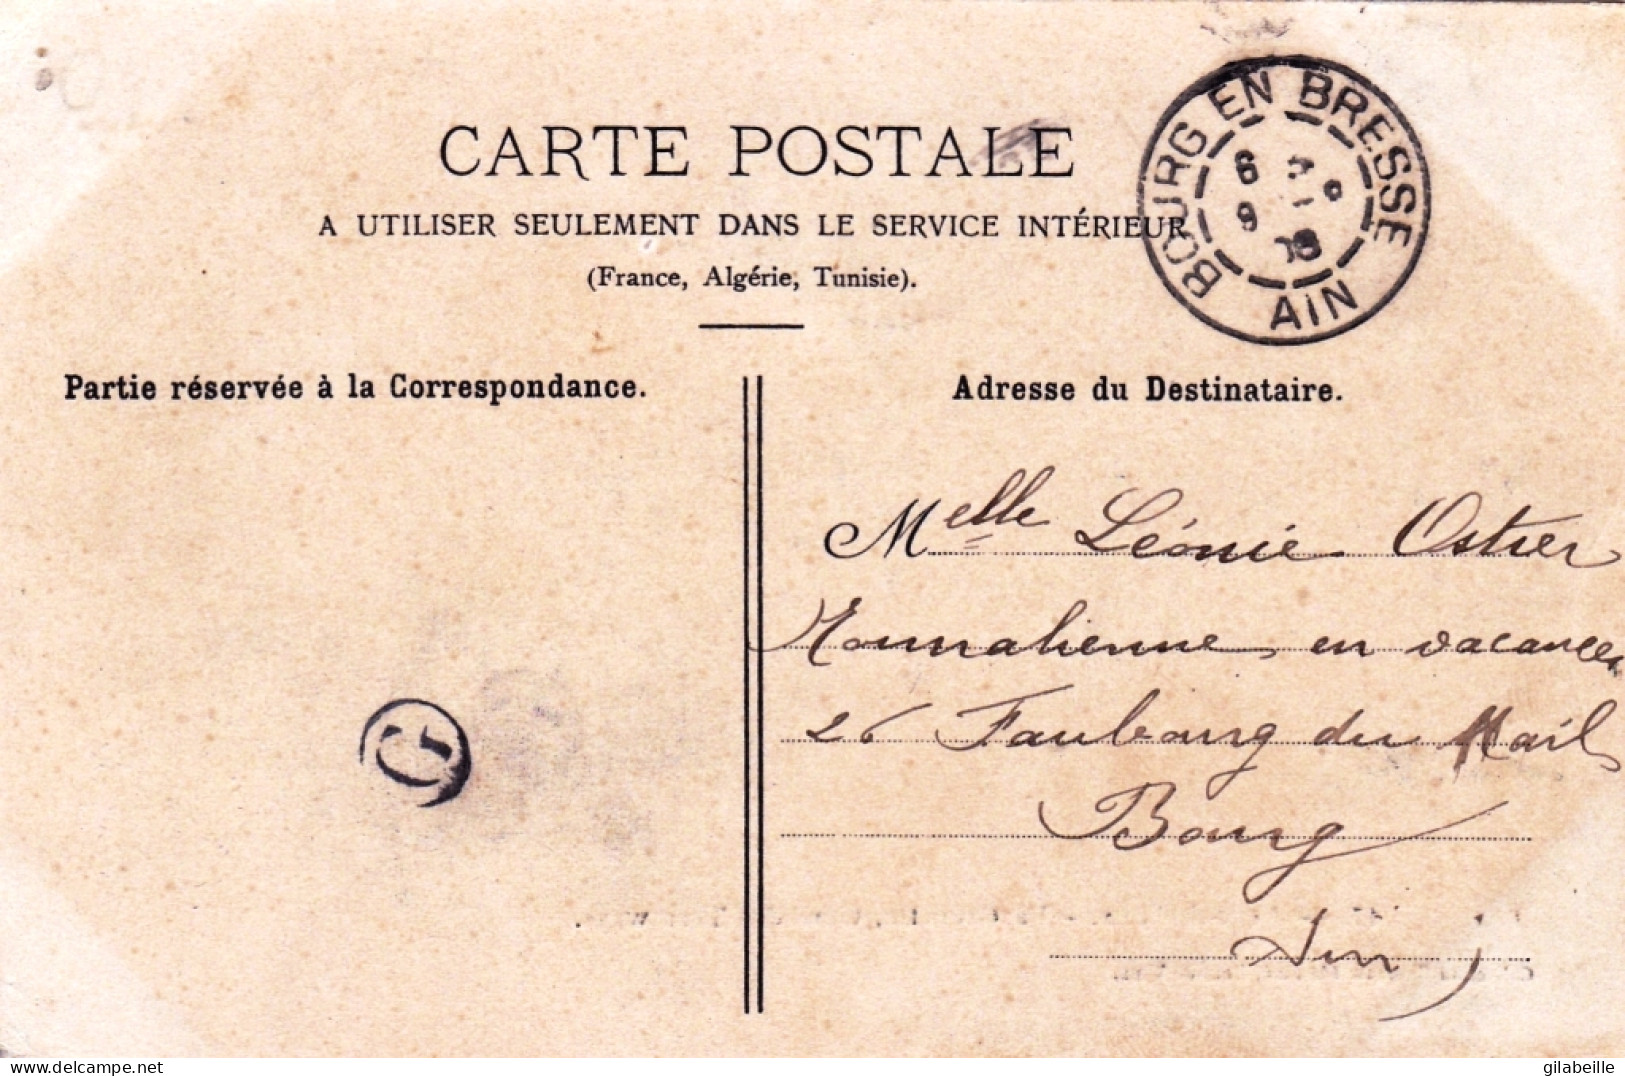 CARTE POSTALE
A UTILISER SEULEMENT DANS LE SERVICE INTÉRIEUR
(France, Algérie, Tunisie).
BOURG EN BRESSE
AIN
Partie réservée à la Correspondance.
Adresse du Destinataire.
Melle Léonie Ostier
en vacances
26 Faubourg du Mail
Bourg
Ain
delcampe.net
gilabeille